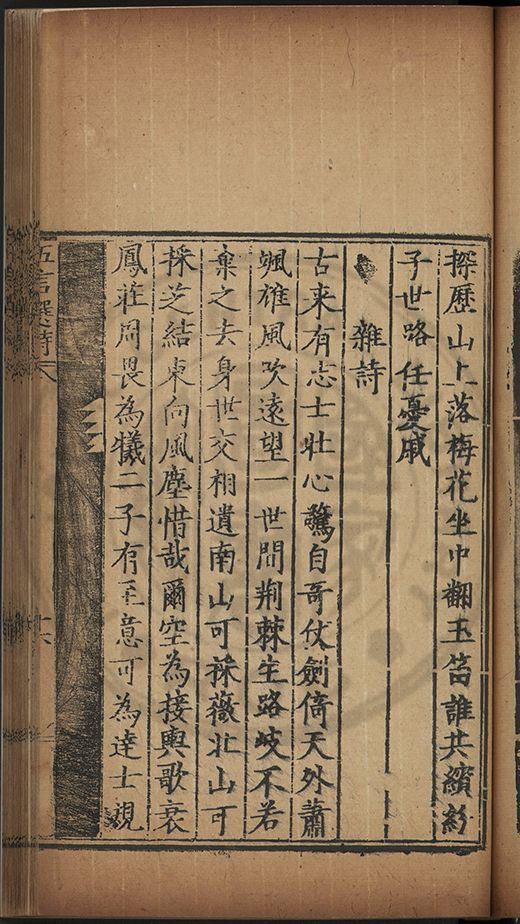 探歷山上落梅花坐中翻玉笛誰共繽紛
子世路任憂戚
雜詩
古來有志士壯心驚自奇仗劍倚天外蕭
颯雄風吹遠望一世間荆棘生路岐不若
棄之去身世交相遺南山可採薇北山可
採芝結束向風塵惜哉爾空為接輿歌衰
鳳莊周畏為犧二子有至意可為達士規
五言選詩
十六